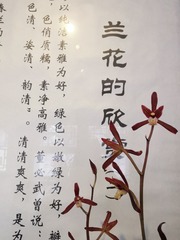 兰花的欣
以纯洁素雅为好，绿色以嫩绿为好，瓣
，色俏质糯，素净高雅。董必武曾说：
色清、姿清、韵清"。清清爽爽，是为